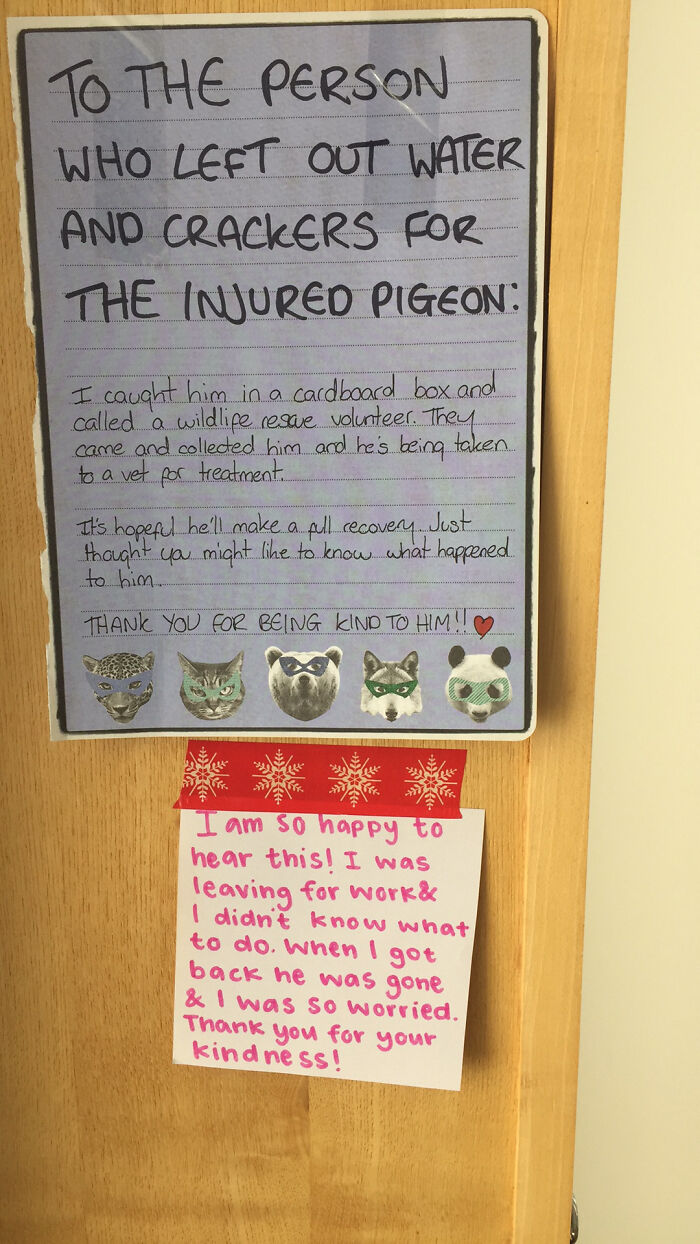 TO THE PERSON
WHO LEFT OUT WATER
AND CRACKERS FOR
THE INJURED PIGEON:
I caught him in a cardboard box and
called a wildlife rescue volunteer. They
came and collected him and he's being taken
to a vet for treatment.
It's hopeful he'll make a full recovery. Just
thought you might like to know what happened
to him.
THANK YOU FOR BEING KIND TO HIM!!
I am so happy to
hear this! I was
leaving for work&
I didn't know what
to do. When I got
back he was gone
& I was so worried.
Thank you for your
kindness!